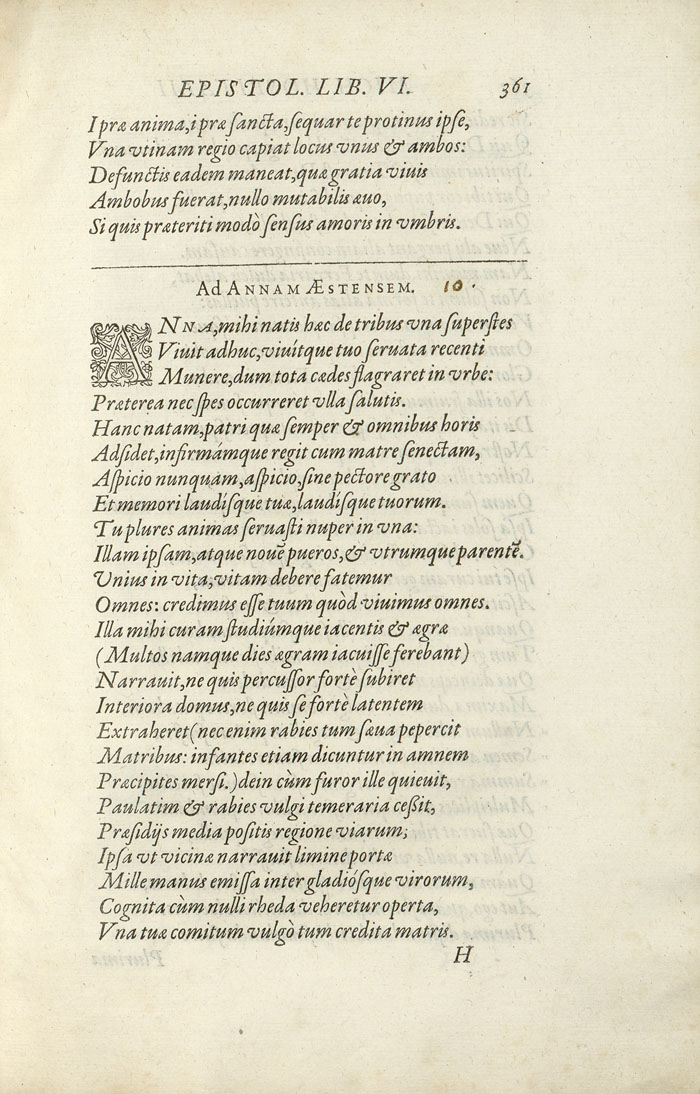 EPISTOL. LIB. VI. 361
I præ anima, i præ sancta, sequar te protinus ipse,
Vna vtinam regio capiat locus vnus & ambos:
Defunctis eadem maneat, quæ gratia viuis
Ambobus fuerat, nullo mutabilis æuo,
Si quis præteriti modò sensus amoris in vmbris.
Ad ANNAM ÆSTENSEM. 10.
ANNA, mihi natis hæc de tribus vna superstes
Viuit adhuc, viuítque tuo seruata recenti
Munere, dum tota cædes flagraret in vrbe:
Præterea nec spes occurreret vlla salutis.
Hanc natam, patri quæ semper & omnibus horis
Adsidet, infirmámque regit cum matre senectam,
Aspicio nunquam, aspicio, sine pectore grato
Et memori laudísque tuæ, laudísque tuorum.
Tu plures animas seruasti nuper in vna:
Illam ipsam, atque nouē pueros, & vtrumque parentē.
Vnius in vita, vitam debere fatemur
Omnes: credimus esse tuum quòd viuimus omnes.
Illa mihi curam studiúmque iacentis & ægræ
(Multos namque dies ægram iacuisse ferebant)
Narrauit, ne quis percussor fortè subiret
Interiora domus, ne quis se fortè latentem
Extraheret (nec enim rabies tum sæua pepercit
Matribus: infantes etiam dicuntur in amnem
Præcipites mersi.) dein cùm furor ille quieuit,
Paulatim & rabies vulgi temeraria cessit,
Præsidijs media positis regione viarum;
Ipsa vt vicinæ narrauit limine portæ
Mille manus emissa inter gladiósque virorum,
Cognita cùm nulli rheda veheretur operta,
Vna tuæ comitum vulgò tum credita matris.
H